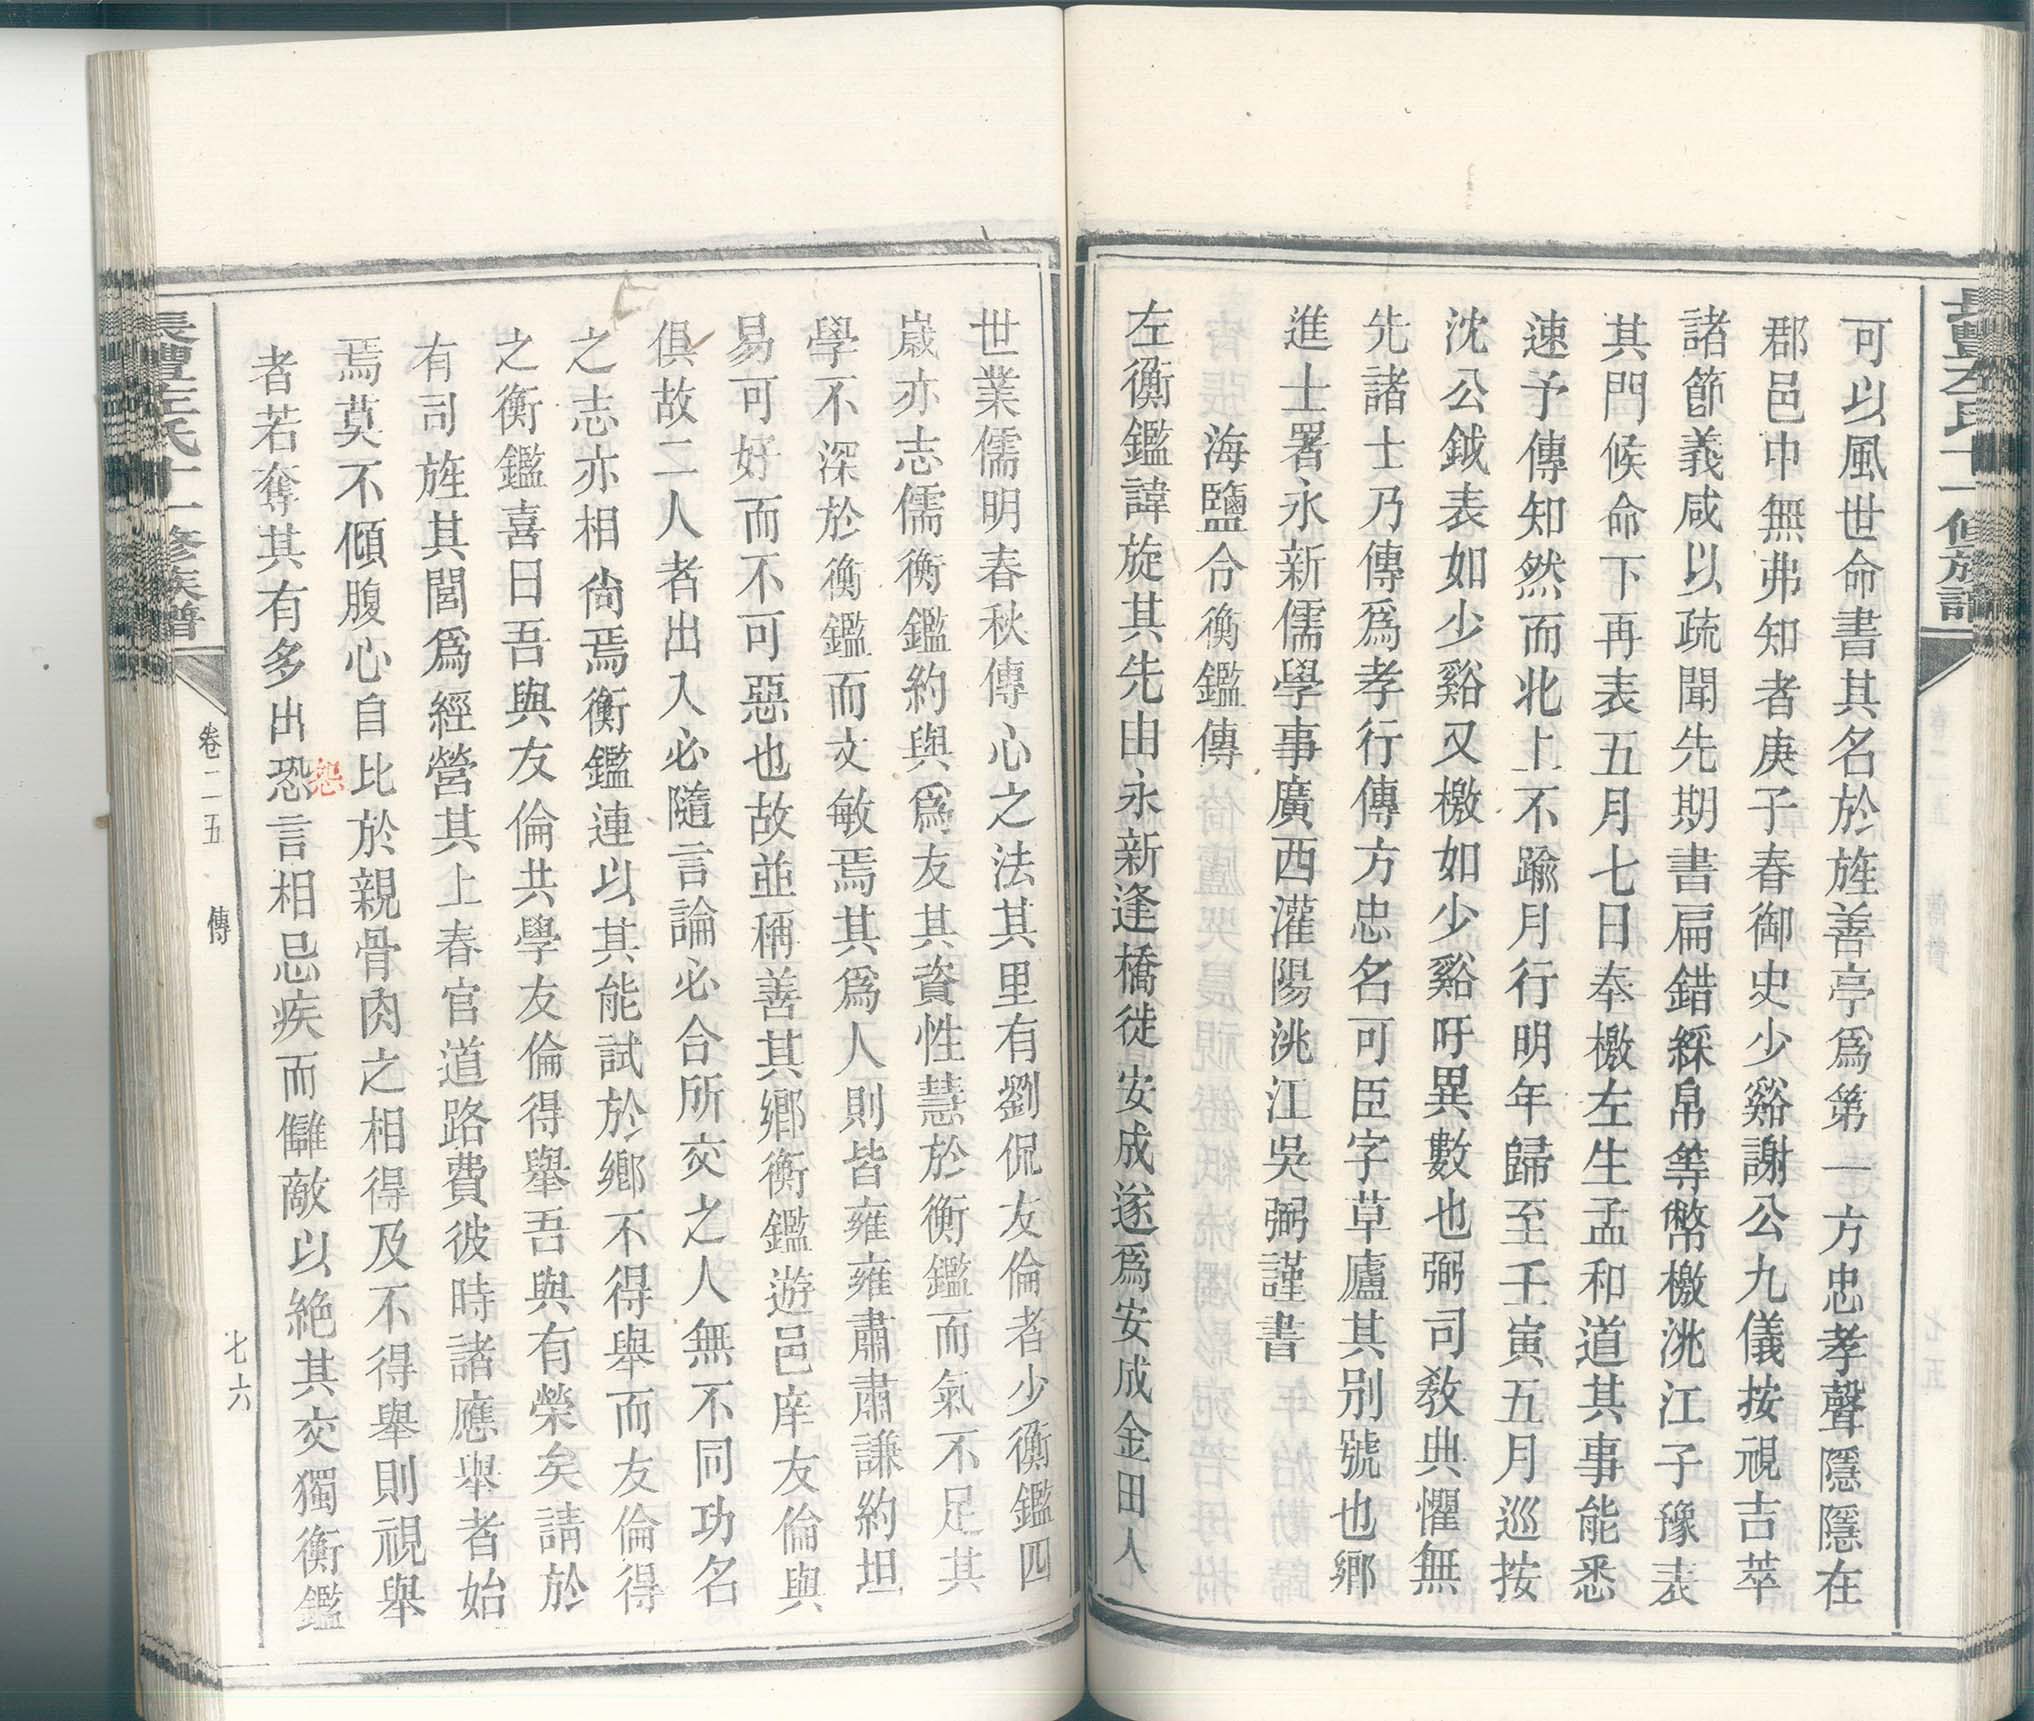 長豐左氏十一修族譜
可以風世命書其名於旌善亭爲第一方忠孝聲隱隱在
郡邑中無弗知者庚子春御史少谿謝公九儀按視吉萃
諸節義咸以疏聞先期書扁錯綵帛等幣檄洮江子豫表
其門候命下再表五月七日奉檄左生孟和道其事能悉
速予傳知然而北上不踰月行明年歸至壬寅五月巡按
沈公鉞表如少谿又檄如少谿吁異數也弼司敎典懼無
先諸士乃傳爲孝行傳方忠名可臣字草廬其别號也鄉
進士署永新儒學事廣西灌陽洮江吳弼謹書
海鹽令衡鑑傳
左衡鑑諱旋其先由永新逢橋徙安成遂爲安成金田人
世業儒明春秋傳心之法其里有劉侃友倫者少衡鑑四
歲亦志儒衡鑑約與爲友其資性慧於衡鑑而氣不足其
學不深於衡鑑而文敏焉其爲人則皆雍雍肅肅謙約坦
易可好而不可惡也故並稱善其鄉衡鑑遊邑庠友倫與
俱故二人者出入必隨言論必合所交之人無不同功名
之志亦相尙焉衡鑑連以其能試於鄉不得舉而友倫得
之衡鑑喜曰吾與友倫共學友倫得舉吾與有榮矣請於
有司旌其閭爲經營其上春官道路費彼時諸應舉者始
焉莫不傾腹心自比於親骨肉之相得及不得舉則視舉
者若奪其有多出恐言相忌疾而讎敵以絶其交獨衡鑑
怨
長豐左氏十一修族譜
卷二五
傳
七六